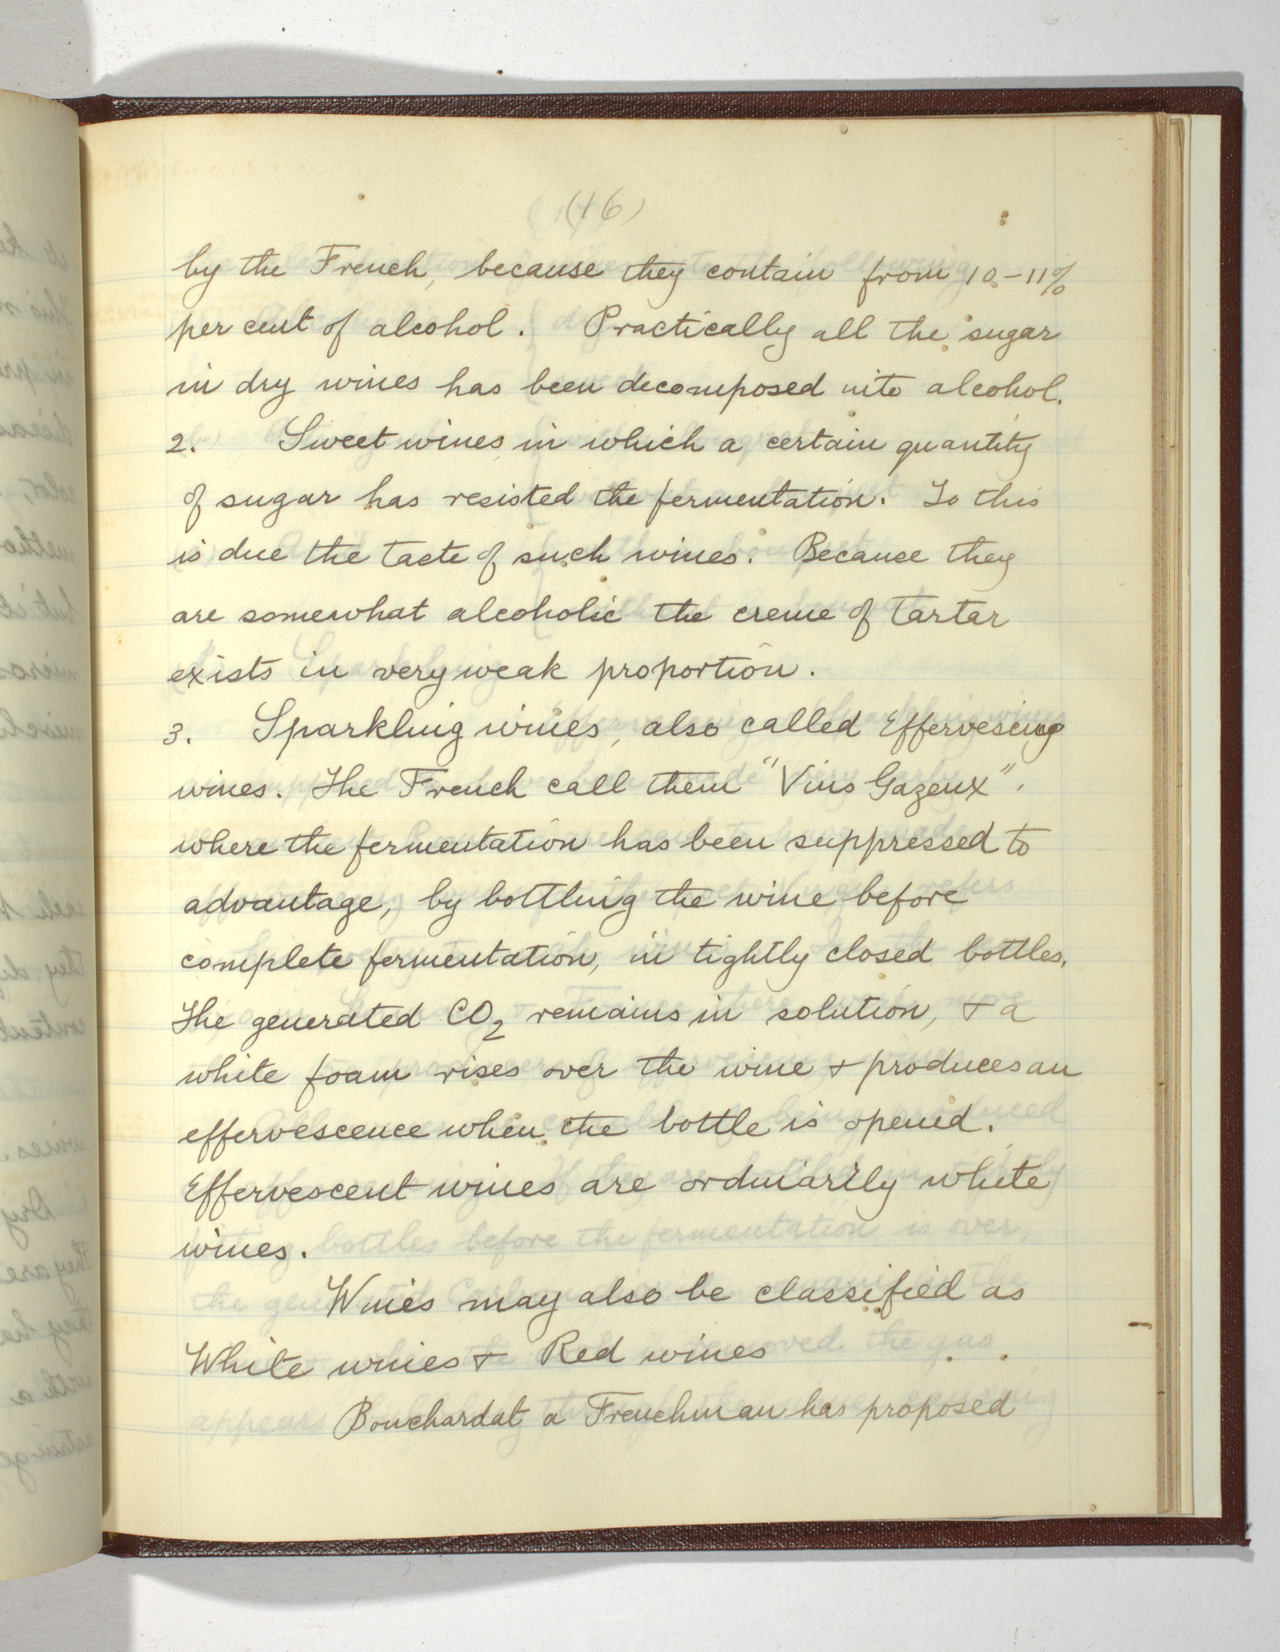 (16)
by the French, because they contain from 10-11%
per cent of alcohol. Practically all the sugar
in dry wines has been decomposed into alcohol.
2. Sweet wines in which a certain quantity
of sugar has resisted the fermentation. To this
is due the taste of such wines. Because they
are somewhat alcoholic the creme of tartar
exists in very weak proportion.
3. Sparkling wines, also called Effervescing
wines. The French call them "Vins Gazeux".
where the fermentation has been suppressed to
advantage, by bottling the wine before
complete fermentation, in tightly closed bottles.
The generated CO2 remains in solution, + a
white foam rises over the wine + produces an
effervescence when the bottle is opened.
Effervescent wines are ordinarily white
wines.
Wines may also be classified as
White wines + Red wines
Bouchardat a Frenchman has proposed